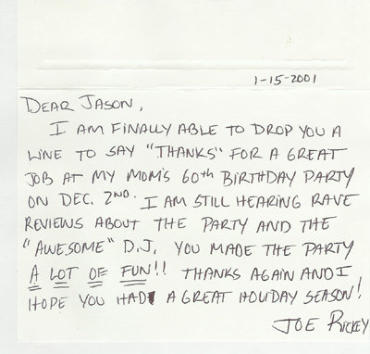 1-15-2001
DEAR JASON,
I AM FINALLY ABLE TO DROP YOU A
LINE TO SAY "THANKS" FOR A GREAT
JOB AT MY MOM'S 60th BIRTHDAY PARTY
ON DEC. 2ND. I AM STILL HEARING RAVE
REVIEWS ABOUT THE PARTY AND THE
"AWESOME" D.J. YOU MADE THE PARTY
A LOT OF FUN!! THANKS AGAIN AND I
HOPE YOU HAD A GREAT HOLIDAY SEASON!
JOE RICKEY